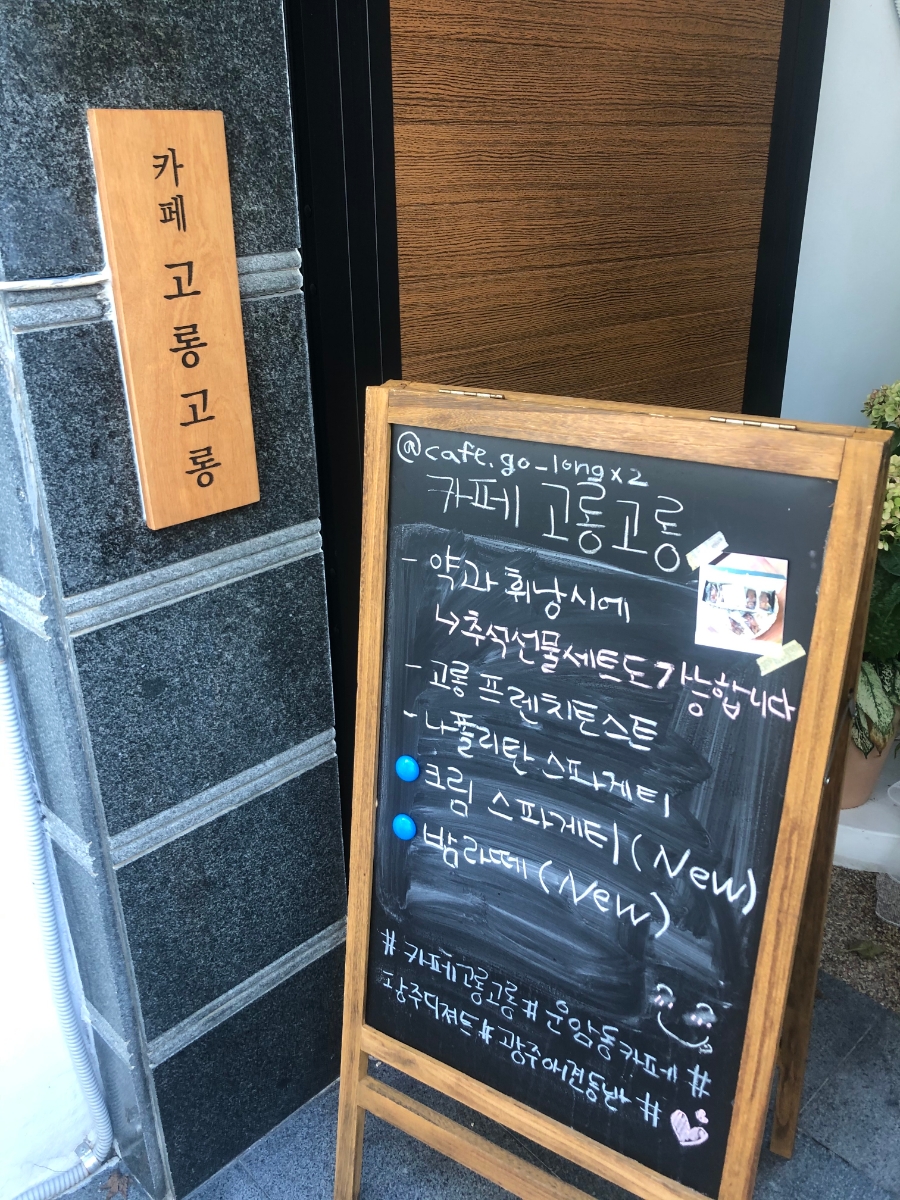 카페 고롱고롱
@cafe.go_longx2
카페 고롱고롱
- 약과 휘낭시에
↳추석선물세트도 가능합니다
- 고롱 프렌치토스트
- 나폴리탄 스파게티
크림 스파게티 (New)
밤라떼 (New)
# 카페고롱고롱 # 운암동카페 #
광주디저트 # 광주애견동반 #